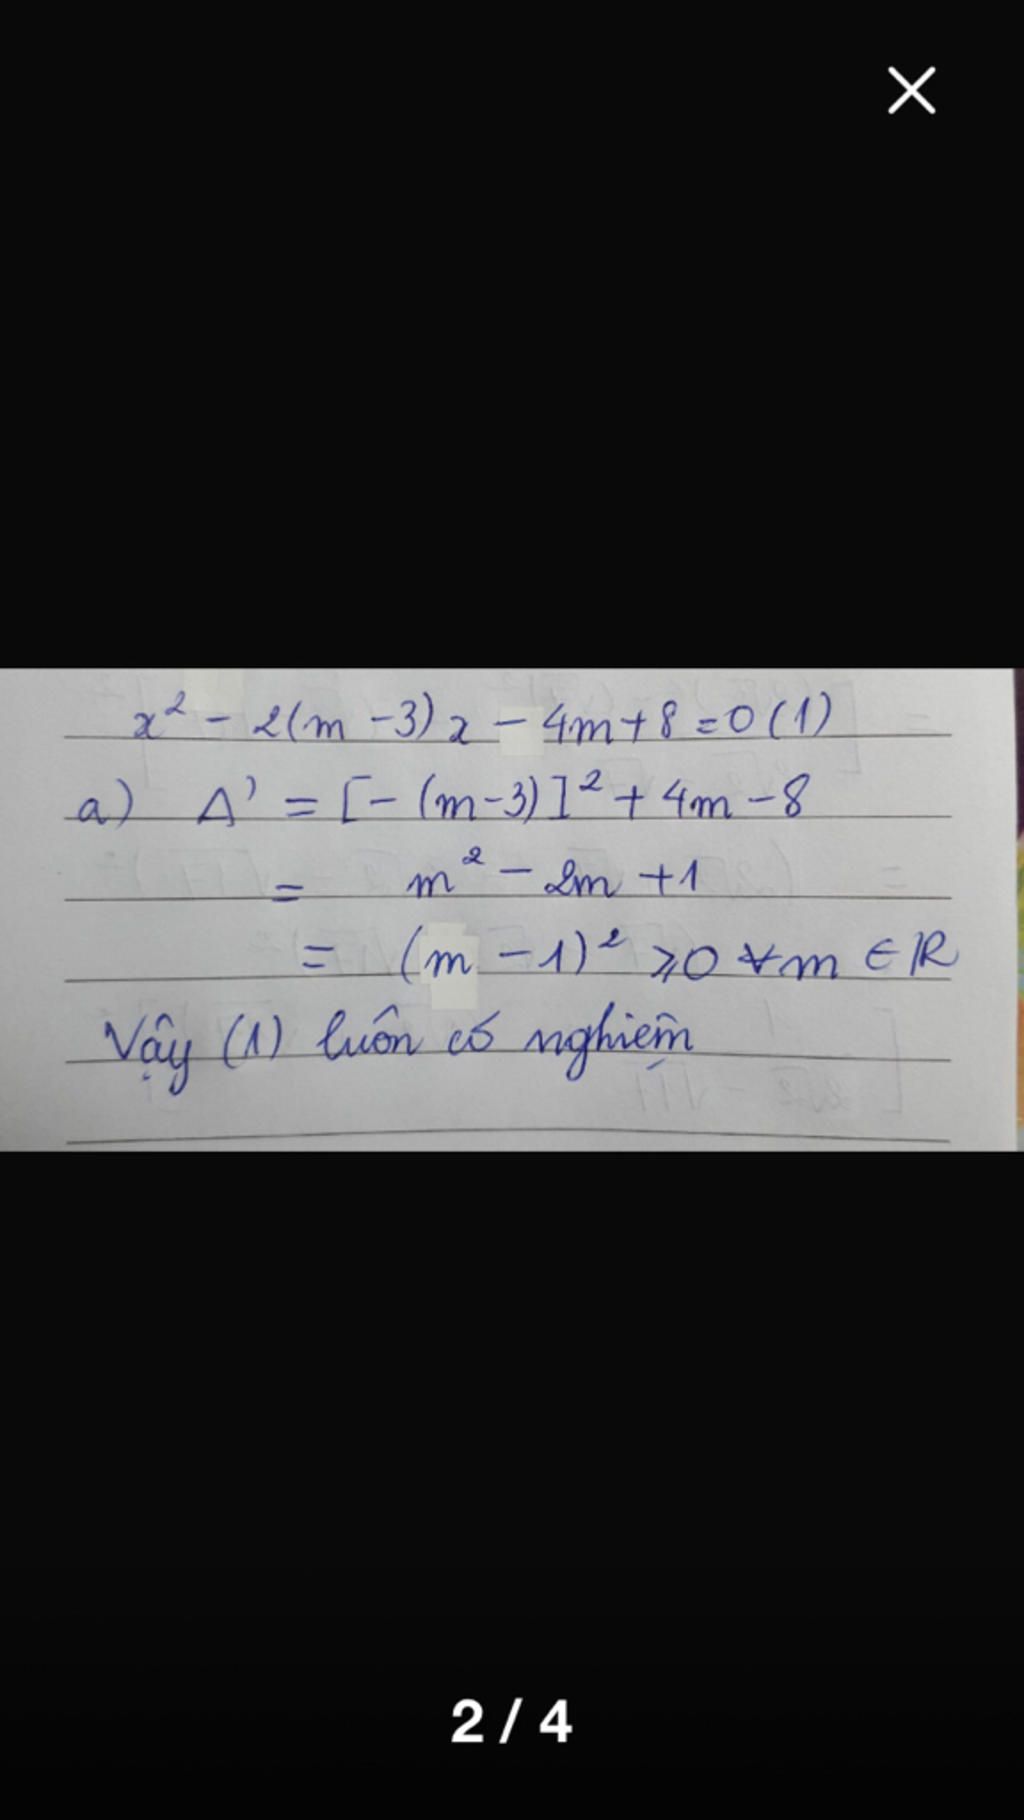 x² - 2(m - 3)x - 4m + 8 = 0 (1)
a) Δ' = [- (m - 3)]² + 4m - 8
= m² - 2m + 1
= (m - 1)² ⩾ 0 ∀m ∈ ℝ
Vậy (1) luôn có nghiệm
2 / 4